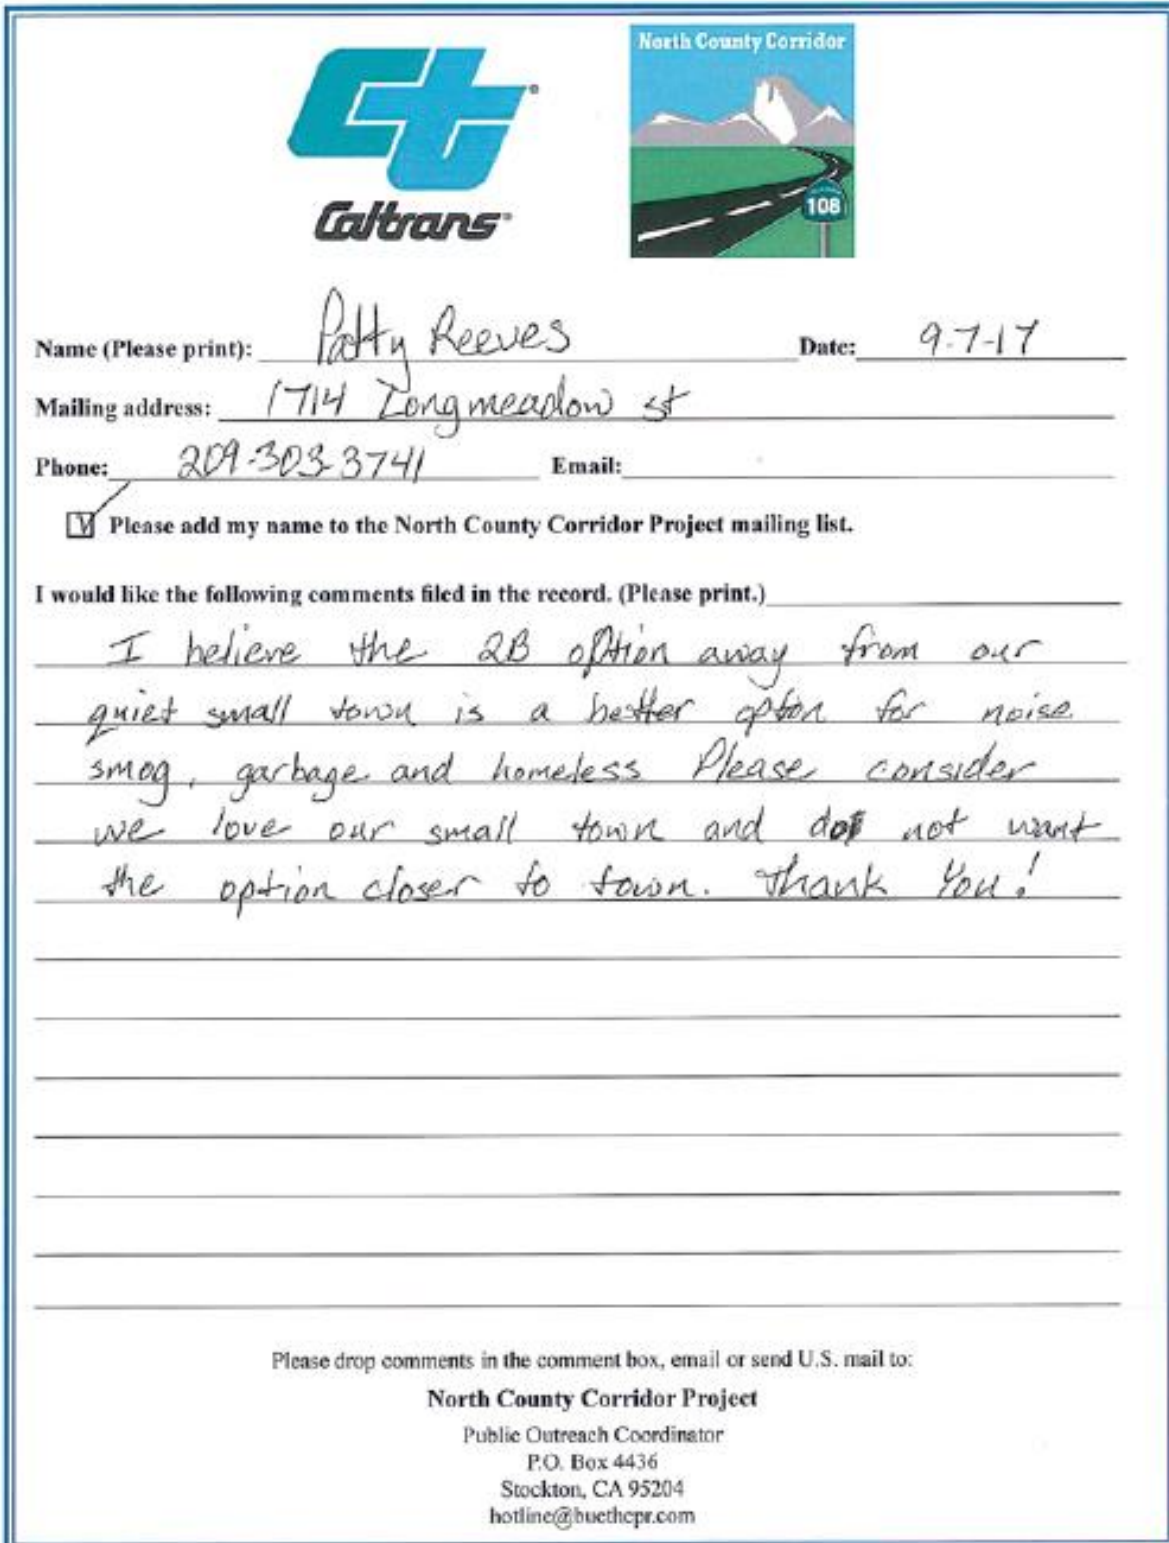 Ct
Caltrans
North County Corridor
108
Name (Please print): Patty Reeves Date: 9-7-17
Mailing address: 1714 Longmeadow st
Phone: 209-303-3741 Email:
Please add my name to the North County Corridor Project mailing list.
I would like the following comments filed in the record. (Please print.)
I believe the 2B option away from our
quiet small town is a better option for noise
smog, garbage and homeless Please consider
we love our small town and do not want
the option closer to town. Thank You!
Please drop comments in the comment box, email or send U.S. mail to:
North County Corridor Project
Public Outreach Coordinator
P.O. Box 4436
Stockton, CA 95204
hotline@buethcpr.com